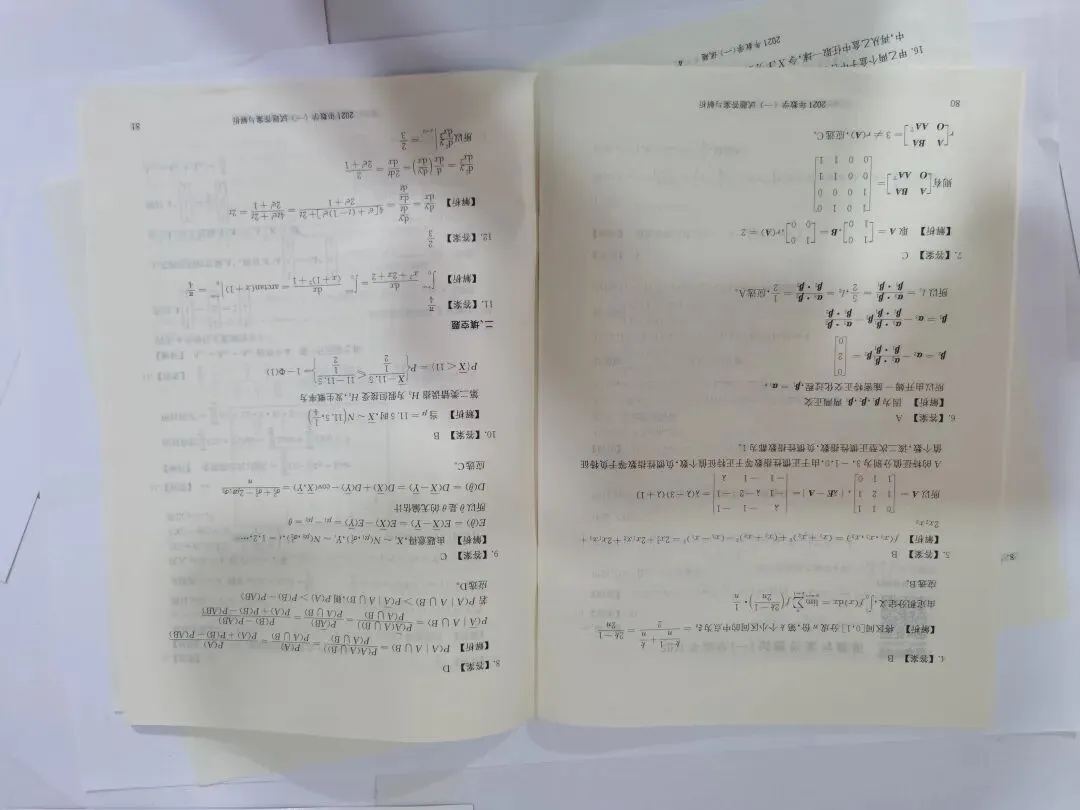 80
2021年数学（一）试题答案与解析
4. 【答案】 B
【解析】 将区间[0,1]分成n份,第k个小区间的中点为ξₖ = (\frac{k-1}{n}+\frac{k}{n})/2 = \frac{2k-1}{2n}
由定积分定义,∫₀¹f(x)dx = \lim_{n→∞}∑_{k=1}^{n} f(\frac{2k-1}{2n})·\frac{1}{n}
应选B。
5. 【答案】 B
【解析】 f(x₁,x₂,x₃) = (x₁+x₂)²+(x₂+x₃)²-(x₃-x₁)² = 2x₂²+2x₁x₂+2x₂x₃+
2x₁x₃
所以 A = [0 1 1; 1 2 1; 1 1 0], |λE-A| = |λ -1 -1; -1 λ-2 -1; -1 -1 λ| = λ(λ-3)(λ+1)
A的特征值分别为3,-1,0,由于正惯性指数等于正特征值个数,负惯性指数等于负特征
值个数,该二次型正惯性指数,负惯性指数都为1。
6. 【答案】 A
【解析】 因为β₁,β₂,β₃两两正交
所以由开始一施密正交化过程,β₁ = α₁
β₂ = α₂-\frac{α₂·β₁}{β₁·β₁}β₁ = [0; 2; 0]
β₃ = α₃-\frac{α₃·β₁}{β₁·β₁}β₁-\frac{α₃·β₂}{β₂·β₂}β₂
所以l₁ = \frac{α₃·β₁}{β₁·β₁} = \frac{5}{2}, l₂ = \frac{α₃·β₂}{β₂·β₂} = \frac{1}{2},应选A。
7. 【答案】 C
【解析】 取A = [1 0; 0 0], B = [1 0; 1 0], r(A) = 2
则有[A BA; O AAᵀ] = [1 0 1 0; 1 0 0 0; 0 0 1 1; 0 0 1 1]
r[A BA; O AAᵀ] = 3 ≠ r(A),应选C。
2021年数学（一）试题答案与解析
81
8. 【答案】 D
【解析】 P(A | A∪B) = \frac{P(A(A∪B))}{P(A∪B)} = \frac{P(A)}{P(A∪B)} = \frac{P(A)}{P(A)+P(B)-P(AB)}
P(\bar{A} | A∪B) = \frac{P(\bar{A}(A∪B))}{P(A∪B)} = \frac{P(\bar{A}B)}{P(A∪B)} = \frac{P(B)-P(AB)}{P(A)+P(B)-P(AB)}
若P(A | A∪B) > P(\bar{A} | A∪B),则P(A) > P(B)-P(AB)
应选D。
9. 【答案】 C
【解析】 由题意得,Xᵢ ~ N(μ₁,σ₁²),Yᵢ ~ N(μ₂,σ₂²),i = 1,2,…
E(\hat{θ}) = E(\bar{X}-\bar{Y}) = E(\bar{X})-E(\bar{Y}) = μ₁-μ₂ = θ
所以\hat{θ}是θ的无偏估计
D(\hat{θ}) = D(\bar{X}-\bar{Y}) = D(\bar{X})+D(\bar{Y})-cov(\bar{X},\bar{Y}) = \frac{σ₁²+σ₂²-2ρσ₁σ₂}{n}
应选C。
10. 【答案】 B
【解析】 当μ = 11.5时,\bar{X} ~ N(11.5,\frac{1}{4})
第二类错误指H₁为假接受H₀,发生概率为
P{\bar{X} < 11} = P{\frac{\bar{X}-11.5}{\frac{1}{2}} ≤ \frac{11-11.5}{\frac{1}{2}}} = 1-Φ(1)
二、填空题
11. 【答案】 \frac{π}{4}
【解析】 ∫₀^{+∞}\frac{dx}{x²+2x+2} = ∫₀^{+∞}\frac{dx}{(x+1)²+1} = arctan(x+1)|₀^{+∞} = \frac{π}{4}
12. 【答案】 \frac{2}{3}
【解析】 \frac{dy}{dx} = \frac{\frac{dy}{dt}}{\frac{dx}{dt}} = \frac{4[eᵗ+(t-1)eᵗ]+2t}{2eᵗ+1} = \frac{4teᵗ+2t}{2eᵗ+1} = 2t
\frac{d²y}{dx²} = \frac{d}{dx}(\frac{dy}{dx}) = \frac{2dt}{dx} = \frac{2}{2eᵗ+1}
所以\frac{d²y}{dx²}|_{t=0} = \frac{2}{3}
2021年数学（一）试题
16. 甲乙两个盒子中
中,再从乙盒中任取一球,令X,Y分